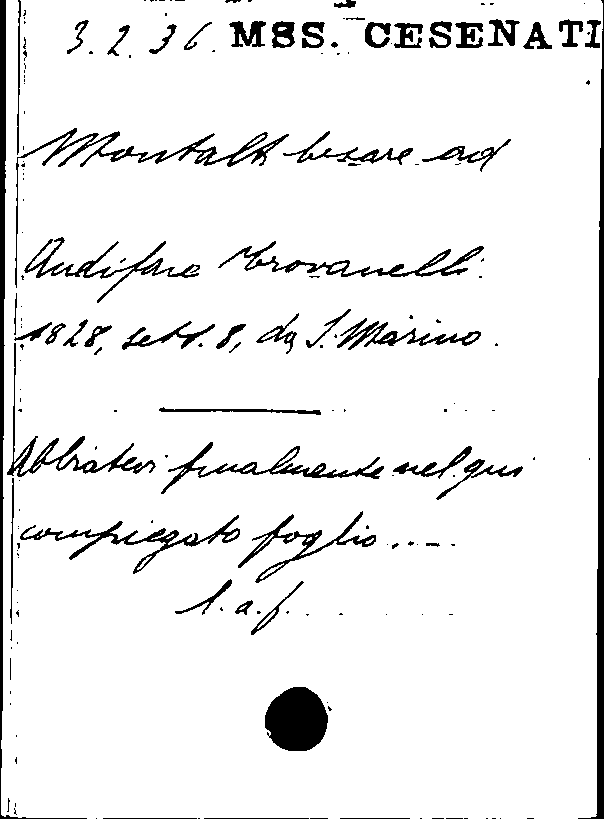 3.2.36. MSS. CESENATI
Montalti Cesare ad
Audiface Trovanelli.
1828, sett. 8, da S. Marino.
Abbiatevi finalmente nel qui
compiegato foglio....
l.a.f.